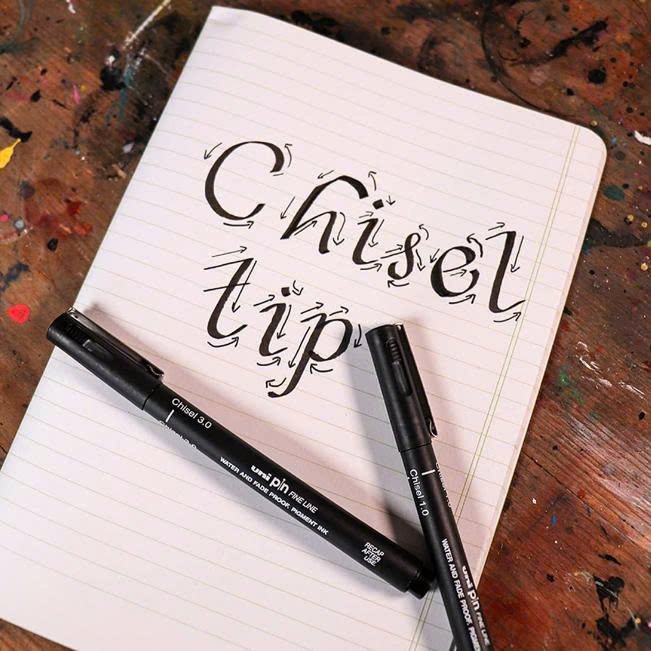 Chisel
tip
Chisel 3.0
uni pin FINE LINE
WATER AND FADE PROOF, PIGMENT INK
RECAP
AFTER
USE
Chisel 1.0
uni pin FINE LINE
WATER AND FADE PROOF, PIGMENT INK